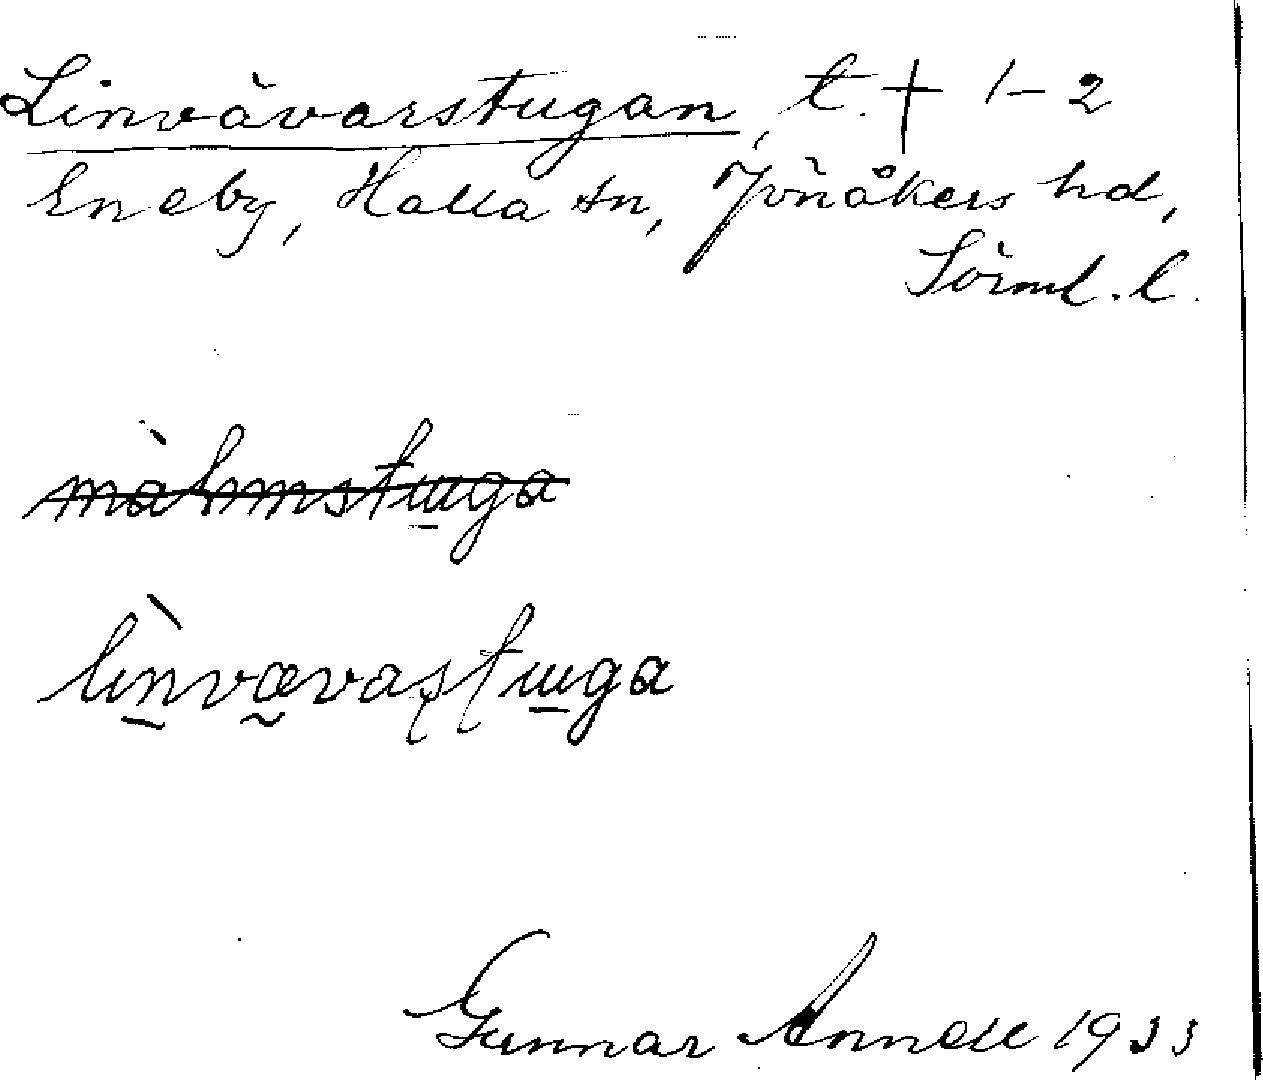 Linvävarstugan, t. † 1-2
Eneby, Halla sn, Jönåkers hd,
Sörml. l.
linvævastuga
Gunnar Annell 1933